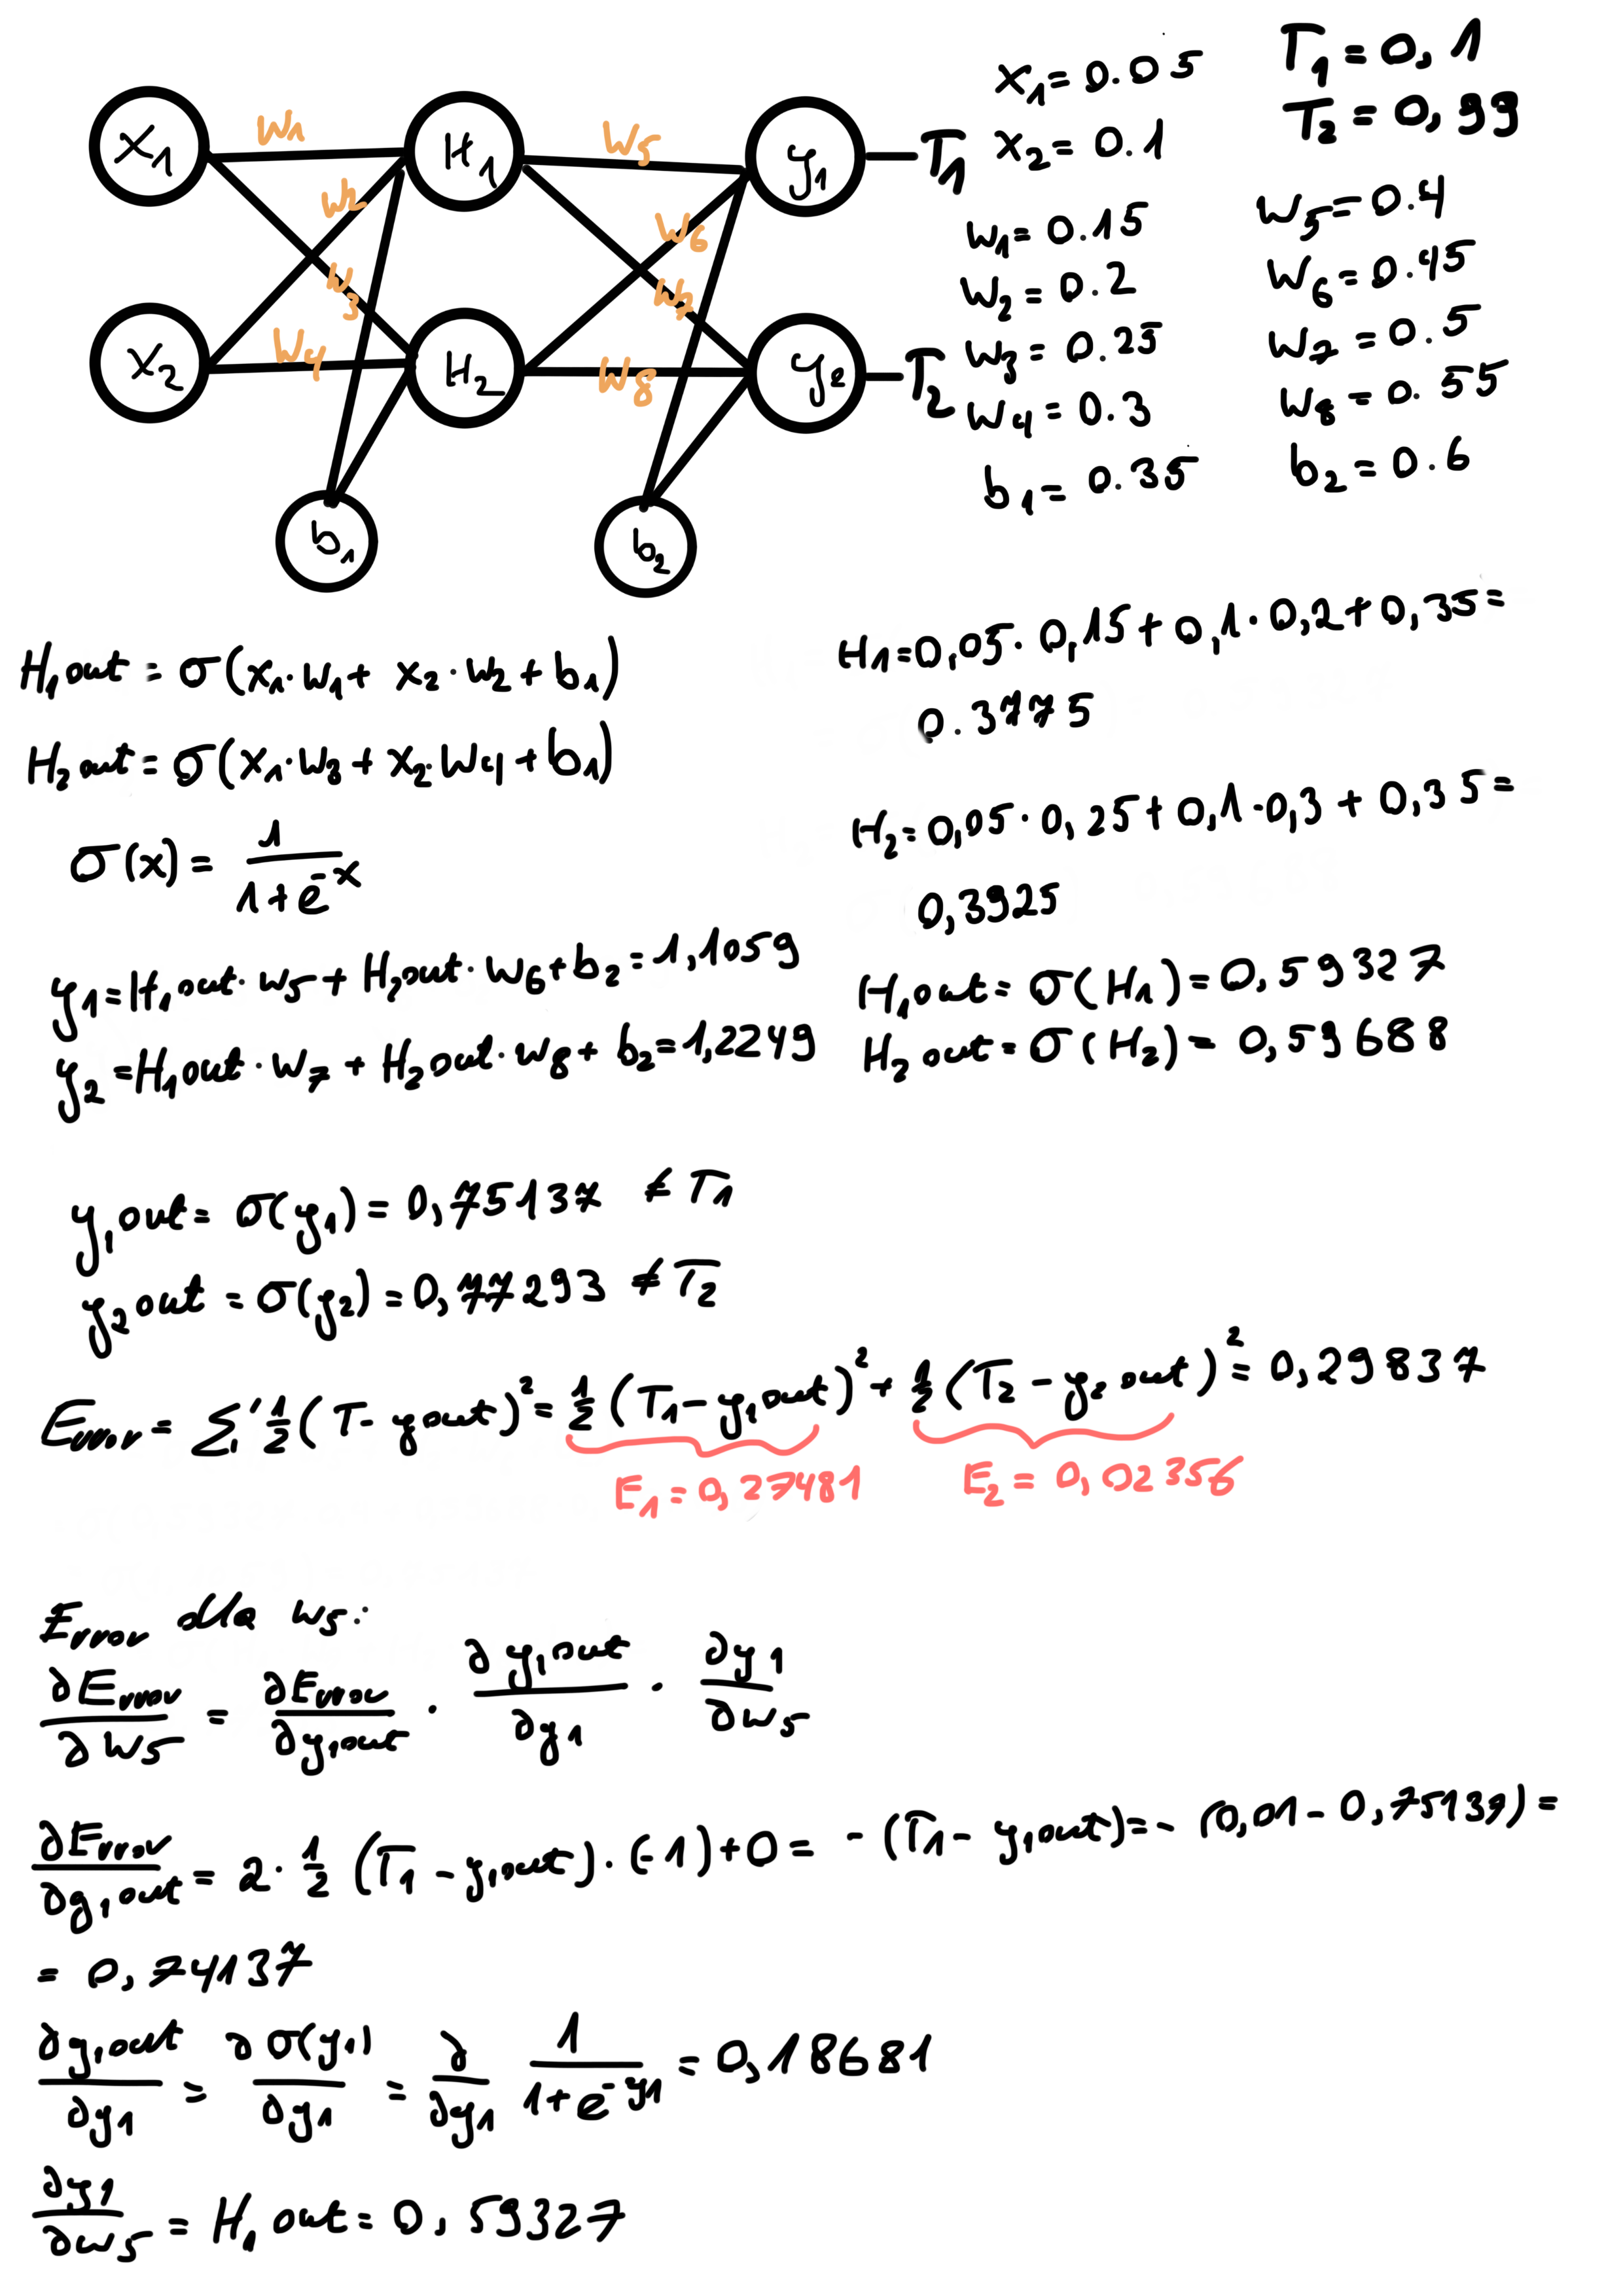 X₁ w₁ H₁ w₅ y₁ T₁
w₂ w₆
w₃ w₇
X₂ w₄ H₂ w₈ y₂ T₂
b₁ b₂
x₁ = 0.05 T₁ = 0,1
x₂ = 0.1 T₂ = 0,99
w₁ = 0.15 w₅ = 0.4
w₂ = 0.2 w₆ = 0.45
w₃ = 0.25 w₇ = 0.5
w₄ = 0.3 w₈ = 0.55
b₁ = 0.35 b₂ = 0.6
H₁out = σ(x₁·w₁ + x₂·w₂ + b₁)
H₂out = σ(x₁·w₃ + x₂·w₄ + b₁)
σ(x) = 1/(1+e^-x)
H1 = 0,05·0,15 + 0,1·0,2 + 0,35 =
0.3775
H₂ = 0,05·0,25 + 0,1·0,3 + 0,35 =
0,3925
H₁out = σ(H₁) = 0,59327
H₂out = σ(H₂) = 0,59688
y1 = H₁out·w₅ + H₂out·w₆ + b₂ = 1,1059
y₂ = H₁out·w₇ + H₂out·w₈ + b₂ = 1,2249
y₁out = σ(y₁) = 0,75137 ≠ T₁
y₂out = σ(y₂) = 0,77293 ≠ T₂
Error = Σ ½(T - yout)² = ½(T₁ - y₁out)² + ½(T₂ - y₂out)² = 0,29837
E₁ = 0,27481 E₂ = 0,02356
Error dla w₅:
∂Error/∂w5 = ∂Error/∂y₁out · ∂y₁out/∂y1 · ∂y1/∂w5
∂Error/∂y₁out = 2·½(T₁ - y₁out)·(-1)+0 = -(T₁ - y₁out) = -(0,01 - 0,75137) =
= 0,74137
∂y₁out/∂y1 = ∂σ(y₁)/∂y1 = ∂/∂y1 1/(1+e^-y1) = 0,18681
∂y1/∂w5 = H₁out = 0,59327